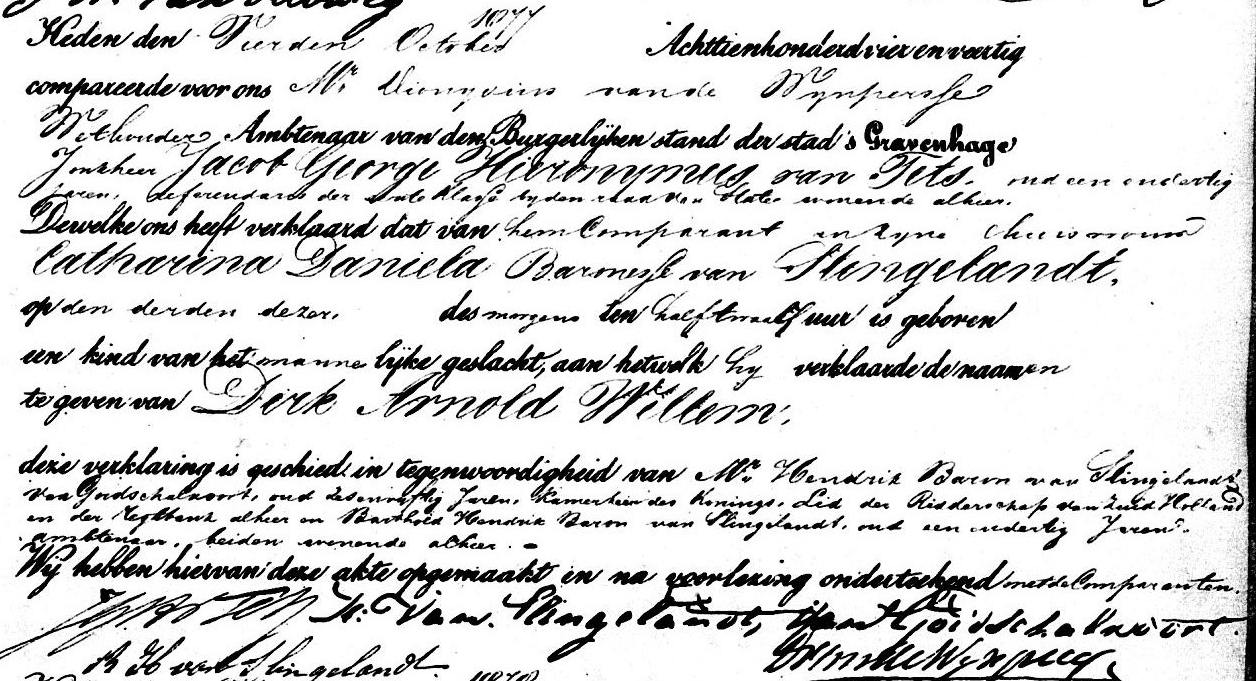 1877
Heden den Vierden October Achttienhonderd vier en veertig
compareerde voor ons Mr. Dionysius van de Wynpersse
Wethouder, Ambtenaar van den Burgerlijken stand der stad 's Gravenhage
Jonkheer Jacob George Hieronymus van Tets. oud een en dertig
Jaren. Referendaris der eerste Klasse by den raad van State wonende alhier.
Dewelke ons heeft verklaard dat van hem Comparant en zyne
Catharina Daniela Baronesse van Slingelandt.
op den derden dezer. des morgens ten half twaalf uur is geboren
een kind van het mannelijke geslacht, aan hetwelk hy verklaarde de naamen
te geven van Dirk Arnold Willem.
deze verklaring is geschied in tegenwoordigheid van Mr. Hendrik Baron van Slingelandt
van Goidschalxoort. oud zesenvyftig Jaren. Kamerheer des Konings. Lid der Ridderschap van Zuid Holland
en der alhier en Barthold Hendrik Baron van Slingelandt. oud een en dertig Jaren.
ambtenaar. beiden wonende alhier.
Wij hebben hiervan deze akte opgemaakt en na voorlezing onderteekend met de Comparanten.
H. van Slingelandt, van Goidschalxoort.
B H van Slingelandt
1878